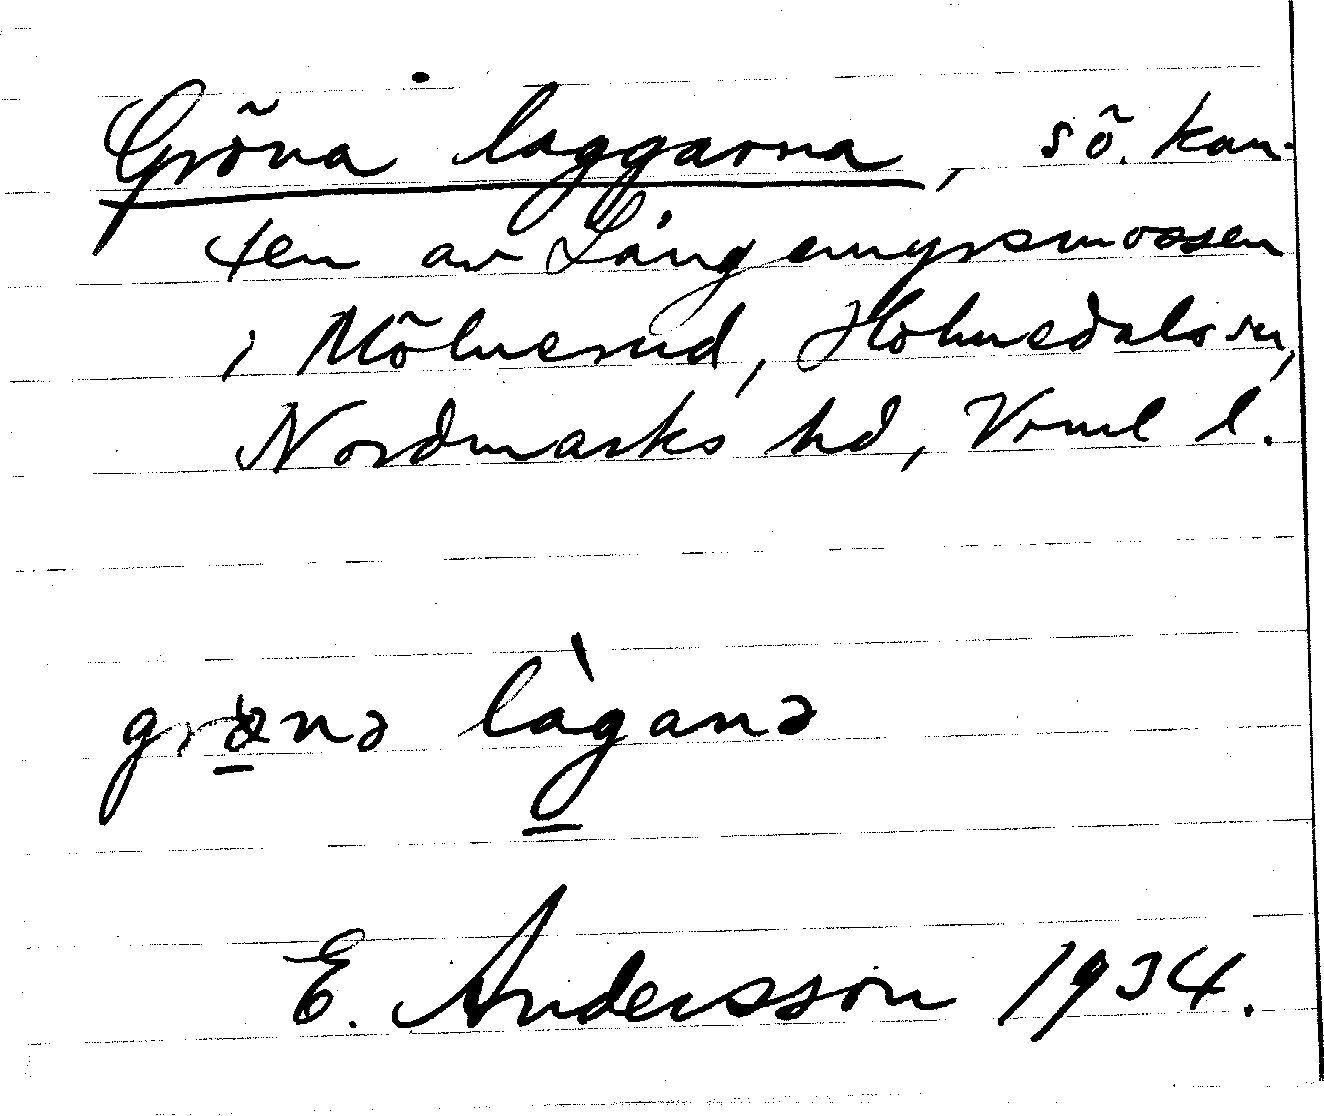 Gröna laggarna, sö. kan-
ten av Långemyrsmossen
i Mölnerud, Holmedals sn,
Nordmarks hd, Vrml l.
grønə làganə
E. Andersson 1934.